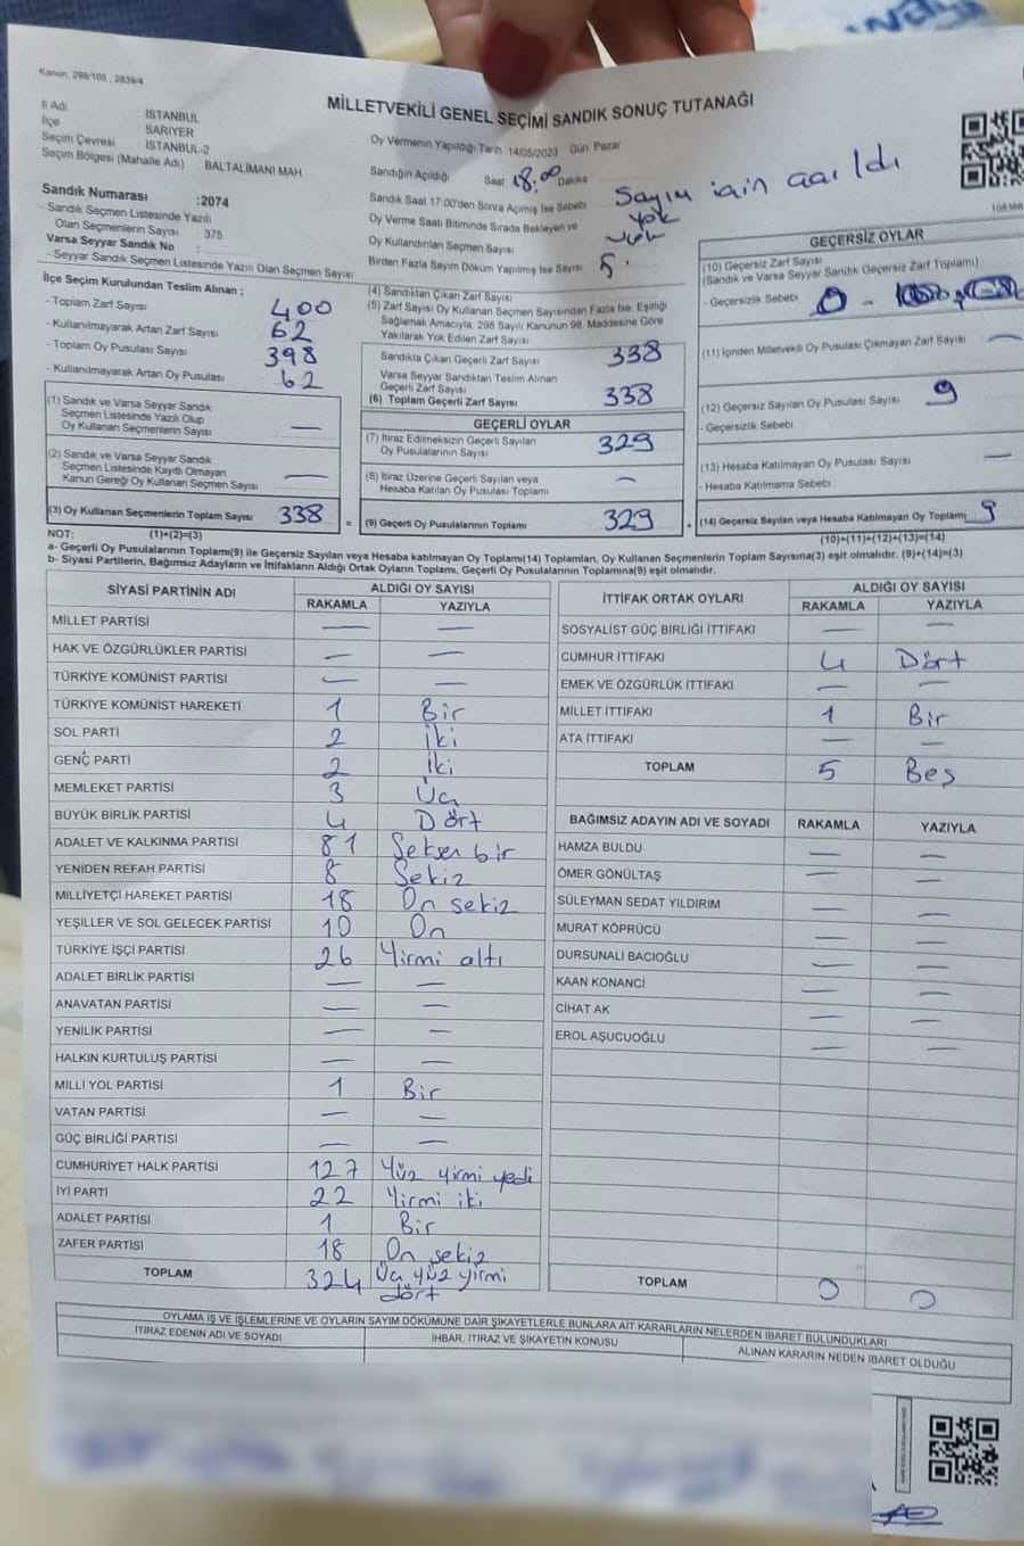 Kanun, 298/105, 2839/4
MİLLETVEKİLİ GENEL SEÇİMİ SANDIK SONUÇ TUTANAĞI
İl Adı İSTANBUL
İlçe SARIYER
Seçim Çevresi İSTANBUL-2
Seçim Bölgesi (Mahalle Adı) BALTALİMANI MAH
Oy Vermenin Yapıldığı Tarih 14/05/2023 Gün Pazar
Sandığın Açıldığı Saat 18:00 Dakika
Sandık Saat 17:00'den Sonra Açılmış İse Sebebi Sayım için açıldı
Oy Verme Saati Bitiminde Sırada Bekleyen ve Yok
Oy Kullandırılan Seçmen Sayısı Yok
Birden Fazla Sayım Döküm Yapılmış İse Sayısı 5.
Sandık Numarası :2074
- Sandık Seçmen Listesinde Yazılı
Olan Seçmenlerin Sayısı 375
Varsa Seyyar Sandık No :
- Seyyar Sandık Seçmen Listesinde Yazılı Olan Seçmen Sayısı
İlçe Seçim Kurulundan Teslim Alınan ;
- Toplam Zarf Sayısı 400
- Kullanılmayarak Artan Zarf Sayısı 62
- Toplam Oy Pusulası Sayısı 398
- Kullanılmayarak Artan Oy Pusulası 62
(1) Sandık ve Varsa Seyyar Sandık
Seçmen Listesinde Yazılı Olup
Oy Kullanan Seçmenlerin Sayısı —
(2) Sandık ve Varsa Seyyar Sandık
Seçmen Listesinde Kayıtlı Olmayan
Kanun Gereği Oy Kullanan Seçmen Sayısı —
(3) Oy Kullanan Seçmenlerin Toplam Sayısı 338
(1)+(2)=(3)
(4) Sandıktan Çıkan Zarf Sayısı
(5) Zarf Sayısı Oy Kullanan Seçmen Sayısından Fazla İse, Eşitliği
Sağlamak Amacıyla, 298 Sayılı Kanunun 98. Maddesine Göre
Yakılarak Yok Edilen Zarf Sayısı
Sandıkta Çıkan Geçerli Zarf Sayısı 338
Varsa Seyyar Sandıktan Teslim Alınan
Geçerli Zarf Sayısı
(6) Toplam Geçerli Zarf Sayısı 338
GEÇERLİ OYLAR
(7) İtiraz Edilmeksizin Geçerli Sayılan
Oy Pusulalarının Sayısı 329
(8) İtiraz Üzerine Geçerli Sayılan veya
Hesaba Katılan Oy Pusulası Toplamı —
= (9) Geçerli Oy Pusulalarının Toplamı 329
GEÇERSİZ OYLAR
(10) Geçersiz Zarf Sayısı
(Sandık ve Varsa Seyyar Sandık Geçersiz Zarf Toplamı)
- Geçersizlik Sebebi 0 -
(11) İçinden Milletvekili Oy Pusulası Çıkmayan Zarf Sayısı —
(12) Geçersiz Sayılan Oy Pusulası Sayısı 9
- Geçersizlik Sebebi
(13) Hesaba Katılmayan Oy Pusulası Sayısı —
- Hesaba Katılmama Sebebi :
+ (14) Geçersiz Sayılan veya Hesaba Katılmayan Oy Toplamı 9
(10)+(11)+(12)+(13)=(14)
NOT:
a- Geçerli Oy Pusulalarının Toplamı(9) ile Geçersiz Sayılan veya Hesaba katılmayan Oy Toplamı(14) Toplamları, Oy Kullanan Seçmenlerin Toplam Sayısına(3) eşit olmalıdır. (9)+(14)=(3)
b- Siyasi Partilerin, Bağımsız Adayların ve İttifakların Aldığı Ortak Oyların Toplamı, Geçerli Oy Pusulalarının Toplamına(9) eşit olmalıdır.
SİYASİ PARTİNİN ADI ALDIĞI OY SAYISI
RAKAMLA YAZIYLA
MİLLET PARTİSİ — —
HAK VE ÖZGÜRLÜKLER PARTİSİ — —
TÜRKİYE KOMÜNİST PARTİSİ — —
TÜRKİYE KOMÜNİST HAREKETİ 1 Bir
SOL PARTİ 2 İki
GENÇ PARTİ 2 İki
MEMLEKET PARTİSİ 3 Üç
BÜYÜK BİRLİK PARTİSİ 4 Dört
ADALET VE KALKINMA PARTİSİ 81 Seksen bir
YENİDEN REFAH PARTİSİ 8 Sekiz
MİLLİYETÇİ HAREKET PARTİSİ 18 On sekiz
YEŞİLLER VE SOL GELECEK PARTİSİ 10 On
TÜRKİYE İŞÇİ PARTİSİ 26 Yirmi altı
ADALET BİRLİK PARTİSİ — —
ANAVATAN PARTİSİ — —
YENİLİK PARTİSİ — —
HALKIN KURTULUŞ PARTİSİ — —
MİLLİ YOL PARTİSİ 1 Bir
VATAN PARTİSİ — —
GÜÇ BİRLİĞİ PARTİSİ — —
CUMHURİYET HALK PARTİSİ 127 Yüz yirmi yedi
İYİ PARTİ 22 Yirmi iki
ADALET PARTİSİ 1 Bir
ZAFER PARTİSİ 18 On sekiz
TOPLAM 324 Üç yüz yirmi
dört
İTTİFAK ORTAK OYLARI ALDIĞI OY SAYISI
RAKAMLA YAZIYLA
SOSYALİST GÜÇ BİRLİĞİ İTTİFAKI — —
CUMHUR İTTİFAKI 4 Dört
EMEK VE ÖZGÜRLÜK İTTİFAKI — —
MİLLET İTTİFAKI 1 Bir
ATA İTTİFAKI — —
TOPLAM 5 Beş
BAĞIMSIZ ADAYIN ADI VE SOYADI RAKAMLA YAZIYLA
HAMZA BULDU — —
ÖMER GÖNÜLTAŞ — —
SÜLEYMAN SEDAT YILDIRIM — —
MURAT KÖPRÜCÜ — —
DURSUNALİ BACIOĞLU — —
KAAN KONANCİ — —
CİHAT AK — —
EROL AŞUCUOĞLU — —
TOPLAM 0 0
OYLAMA İŞ VE İŞLEMLERİNE VE OYLARIN SAYIM DÖKÜMÜNE DAİR ŞİKAYETLERLE BUNLARA AİT KARARLARIN NELERDEN İBARET BULUNDUKLARI
İTİRAZ EDENİN ADI VE SOYADI İHBAR, İTİRAZ VE ŞİKAYETİN KONUSU ALINAN KARARIN NEDEN İBARET OLDUĞU